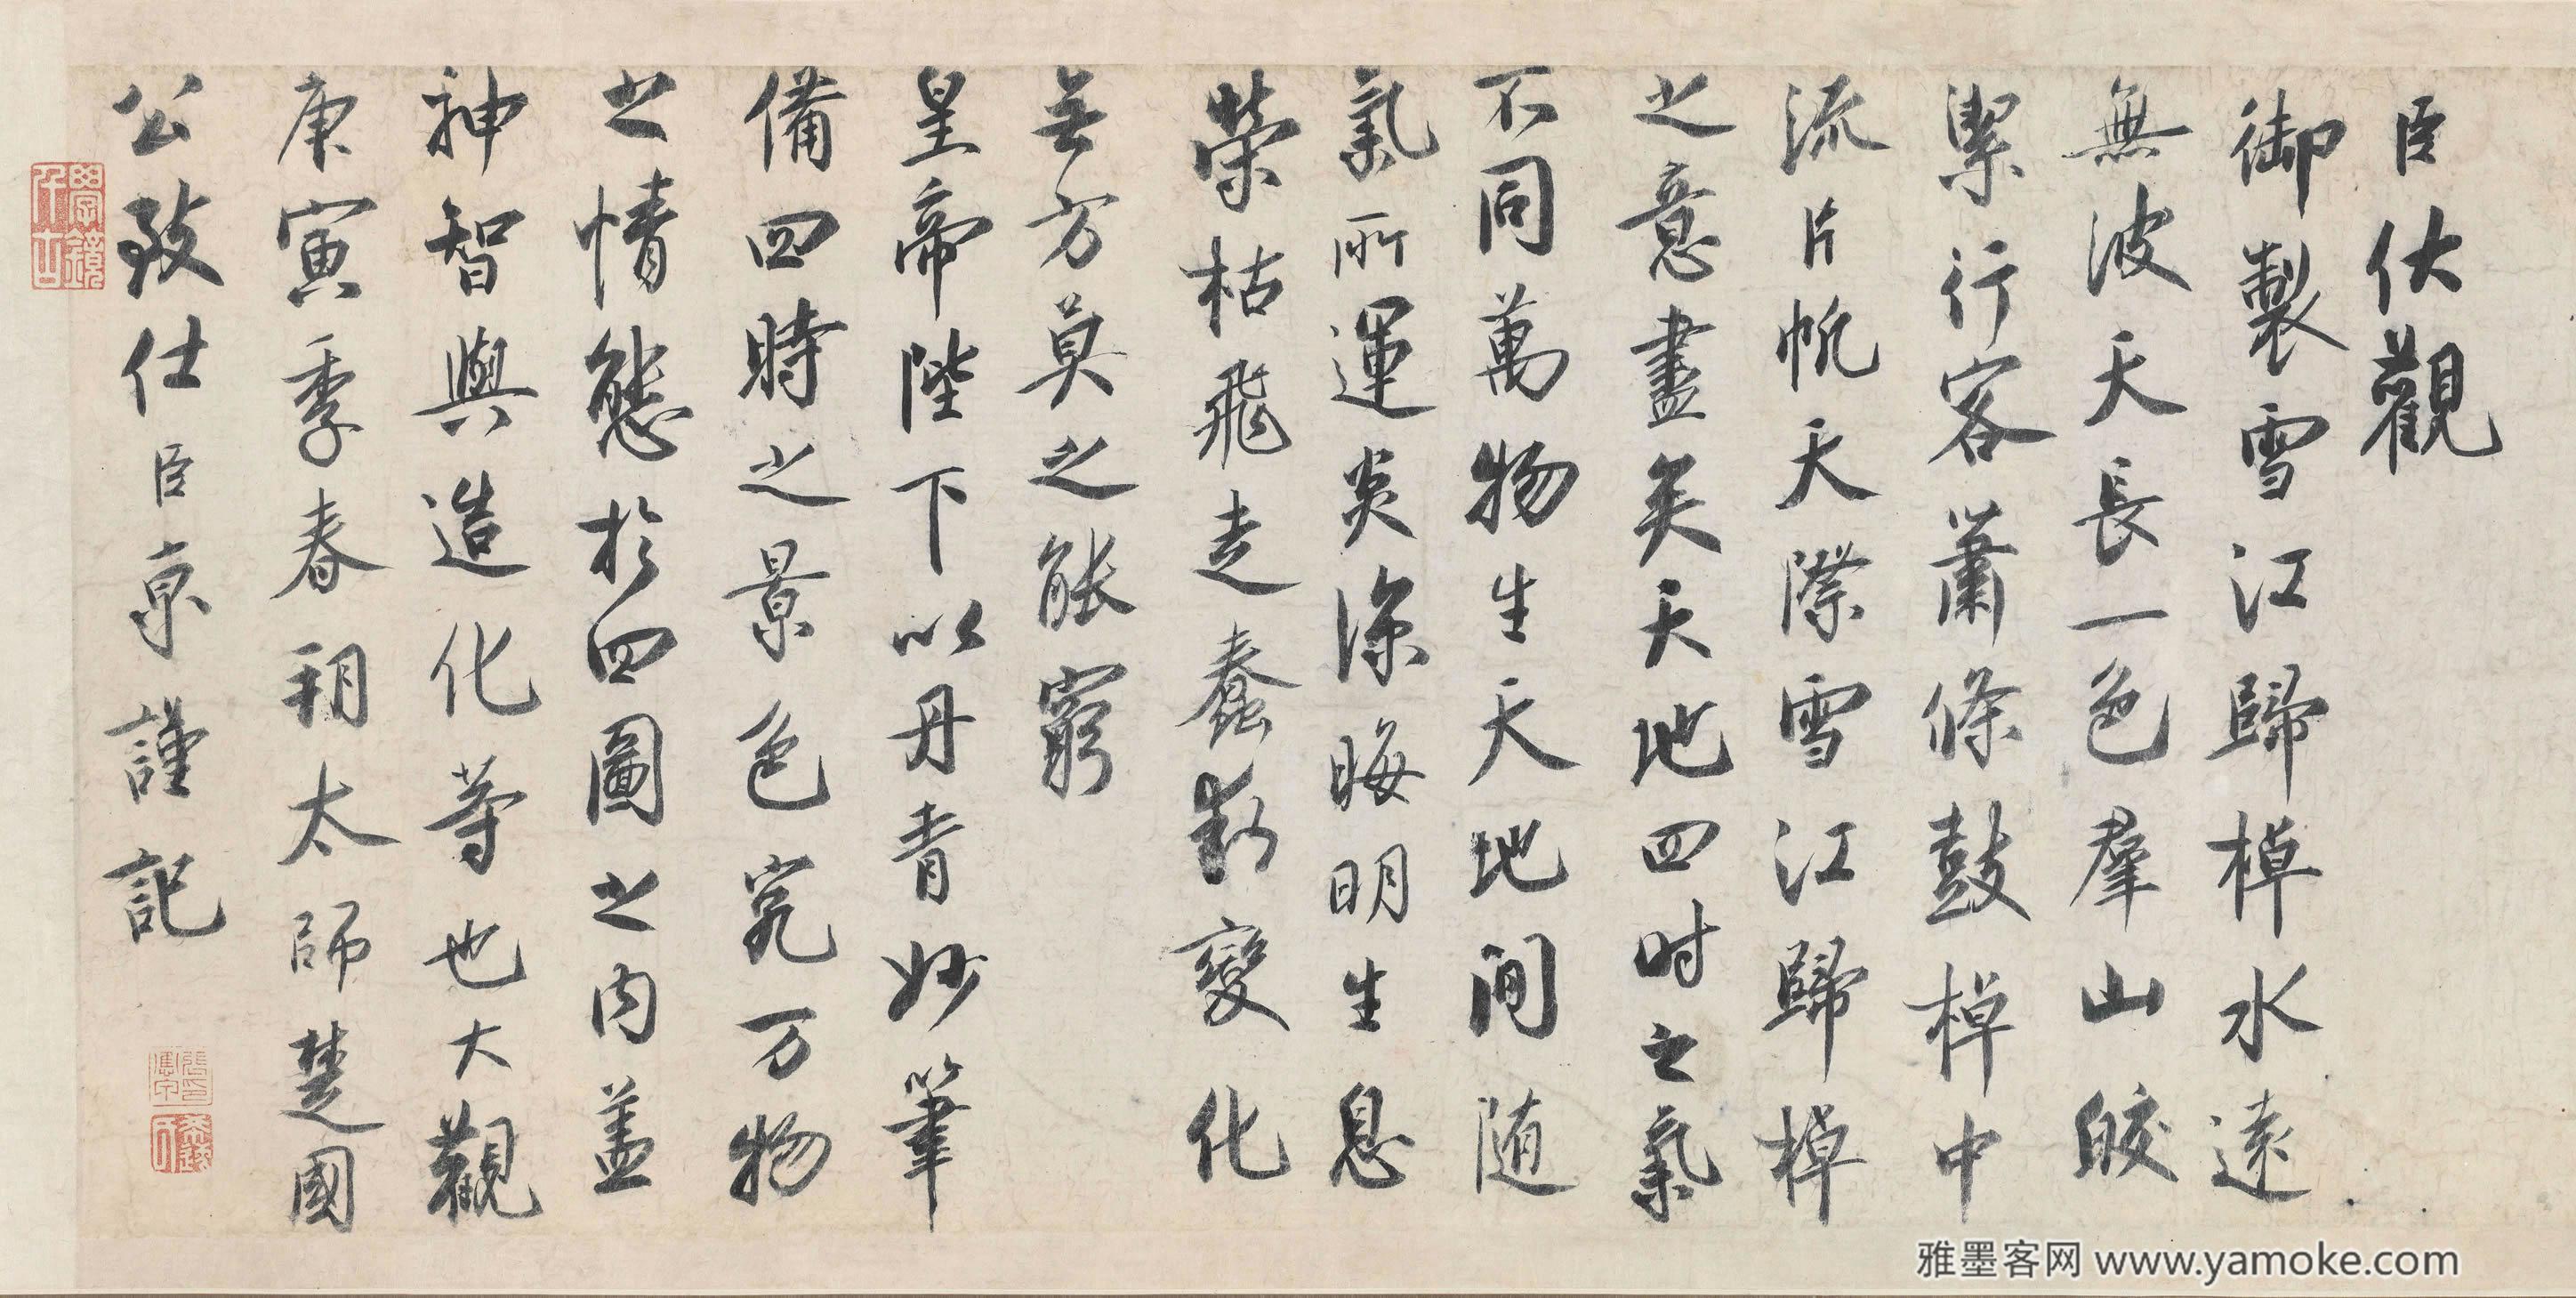 臣伏觀
御製雪江歸棹水遠
無波天長一色羣山皎
潔行客蕭條鼓棹中
流片帆天際雪江歸棹
之意盡矣天地四时之氣
不同萬物生天地间随
氣所運炎涼晦明生息
榮枯飛走蠢動變化
無方莫之能窮
皇帝陛下以丹青妙筆
備四時之景色究万物
之情態於四圖之内盖
神智與造化等也大觀
庚寅季春朔太師楚國
公致仕臣京謹記
雅墨客网 www.yamoke.com